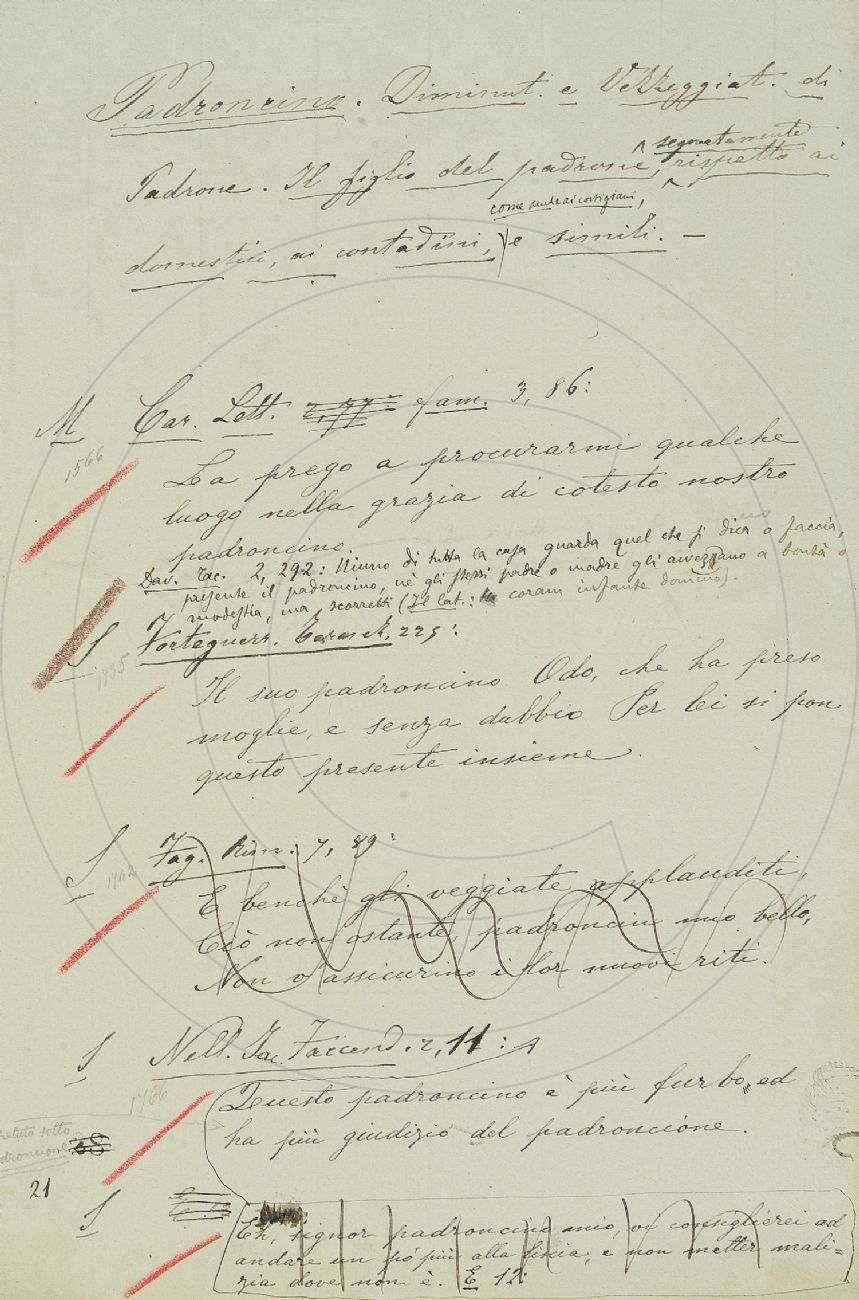 Padroncino. Diminut. e Vezzeggiat. di
segnatamente
Padrone. Il figlio del padrone, rispetto ai
come anche ai cortigiani,
domestici, ai contadini, e simili. —
M Car. Lett. fam. 3, 86:
1566
La prego a procurarmi qualche
luogo nella grazia di cotesto nostro
padroncino.
Dav. Tac. 2, 292: Niuno di tutta la casa guarda quel che si dica o faccia,
presente il padroncino, nè gli stessi padre o madre gli avvezzano a bontà o
modestia, ma scorretti (Il lat.: coram infante domino).
S Forteguerr. 225:
1735
Il suo padroncino Odo, che ha preso
moglie, e senza dubbio Per lei si pon
questo presente insieme.
S Fag. Rim. 7, 89:
1742
E benchè gli veggiate applauditi,
Ciò non ostante, padroncin mio bello,
Non v'assicurino i lor nuovi riti.
S Nell. Jac. Faccend. 2, 11:
1766
Questo padroncino è più furbo, ed
ha più giudizio del padroncione.
sotto
padroncione
21
S Eh, signor padroncino mio, vi consiglierei ad
andare un pò più alla liscia, e non metter mali=
zia dove non è. E 12: